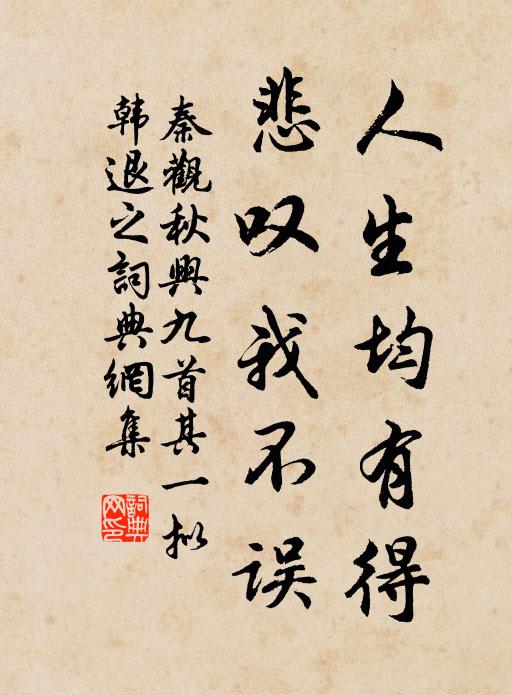 人生均有得
悲叹我不误
秦觀秋興九首其一拟
韩退之詞典網集
詞典
网印